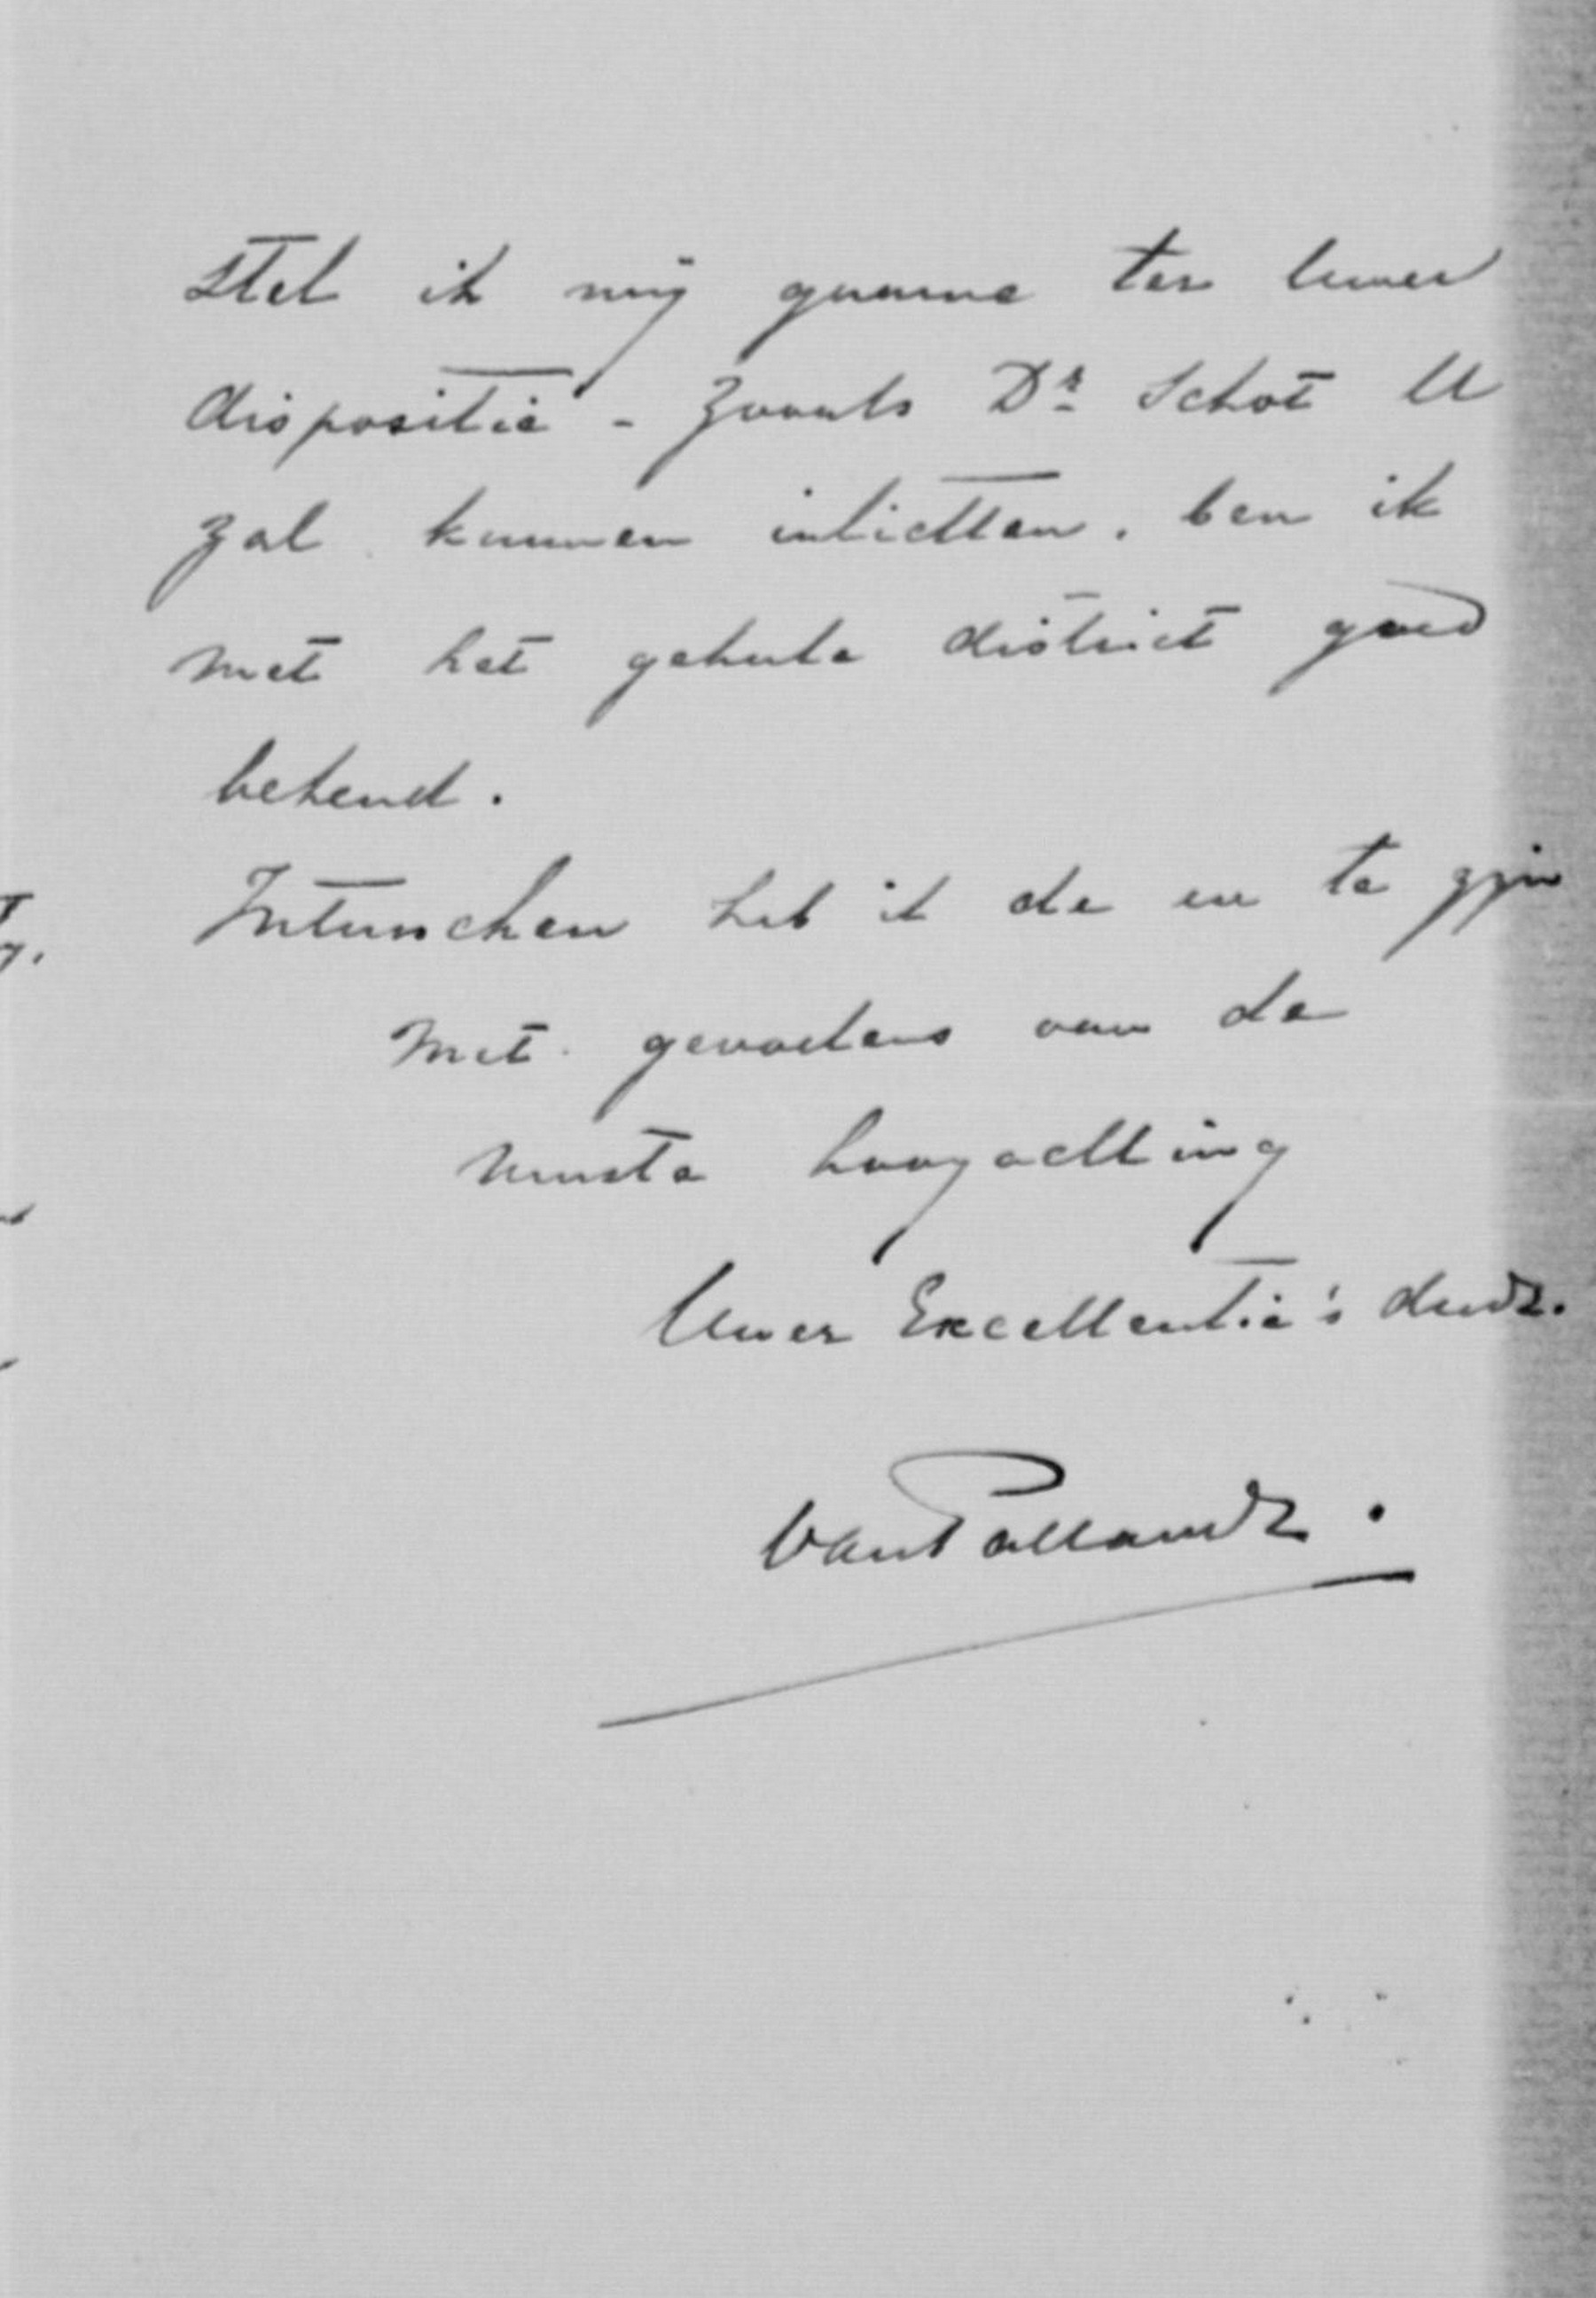 stel ik mij gaarne ter Uwer
dispositie - Zooals Dr Schot U
zal kunnen inlichten. ben ik
met het geheele district goed
bekend.
Intusschen heb ik de eer te zijn
met gevoelens van de
meeste hoogachting
Uwer Excellentie's dwdr.
VanPallandt.